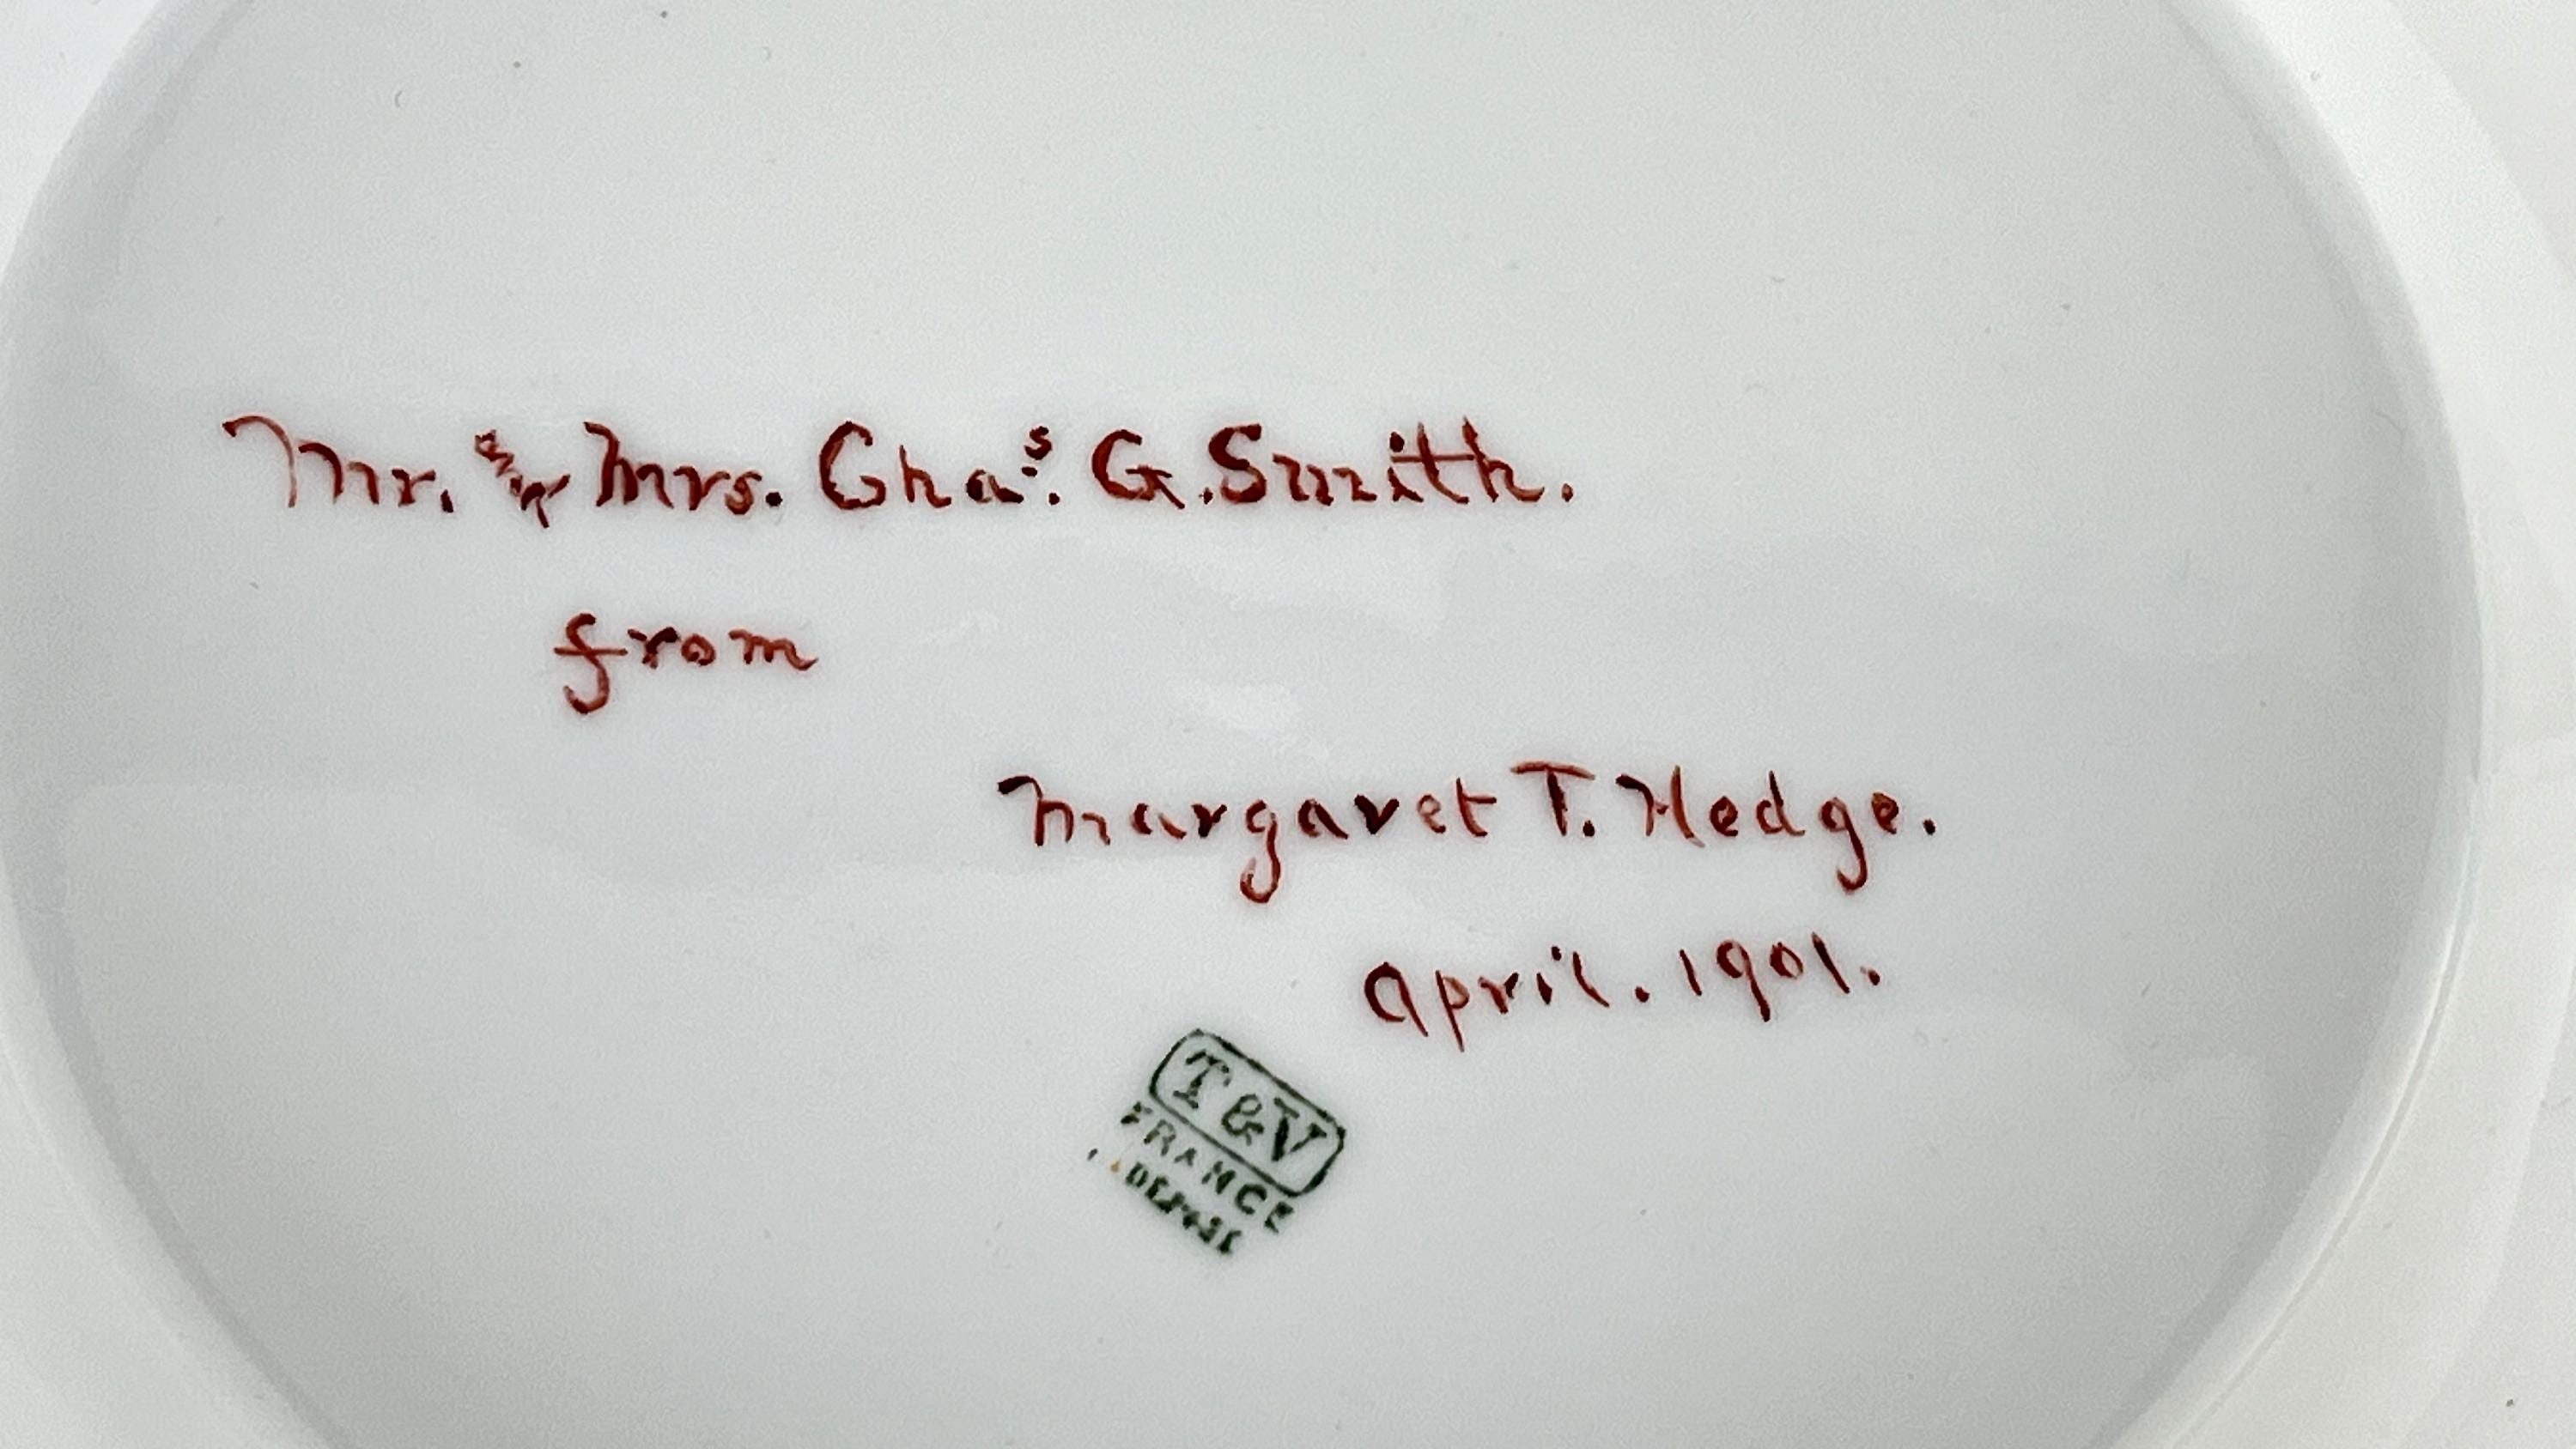 Mr. & Mrs. Chas. G. Smith.
from
Margaret T. Hedge.
April. 1901.
T&V
FRANCE
DEPOSE